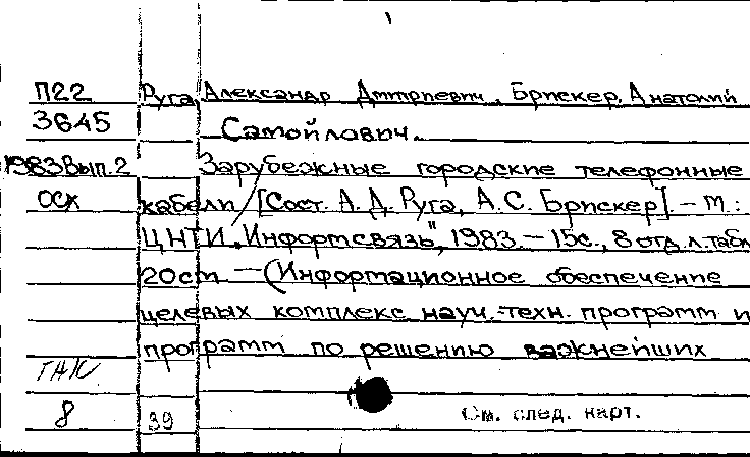 П22 Руга, Александр Дмитриевич, Брискер, Анатолий
3645 Самойлович.
1983 Вып.2 Зарубежные городские телефонные
осх кабели / [Сост. А. Д. Руга, А. С. Брискер]. – М.:
ЦНТИ „Информсвязь", 1983. – 15с., 8 отд. л. табл.
20см. – (Информационное обеспечение
целевых комплекс. науч.-техн. программ и
программ по решению важнейших
ГАК
8 39 См. след. карт.